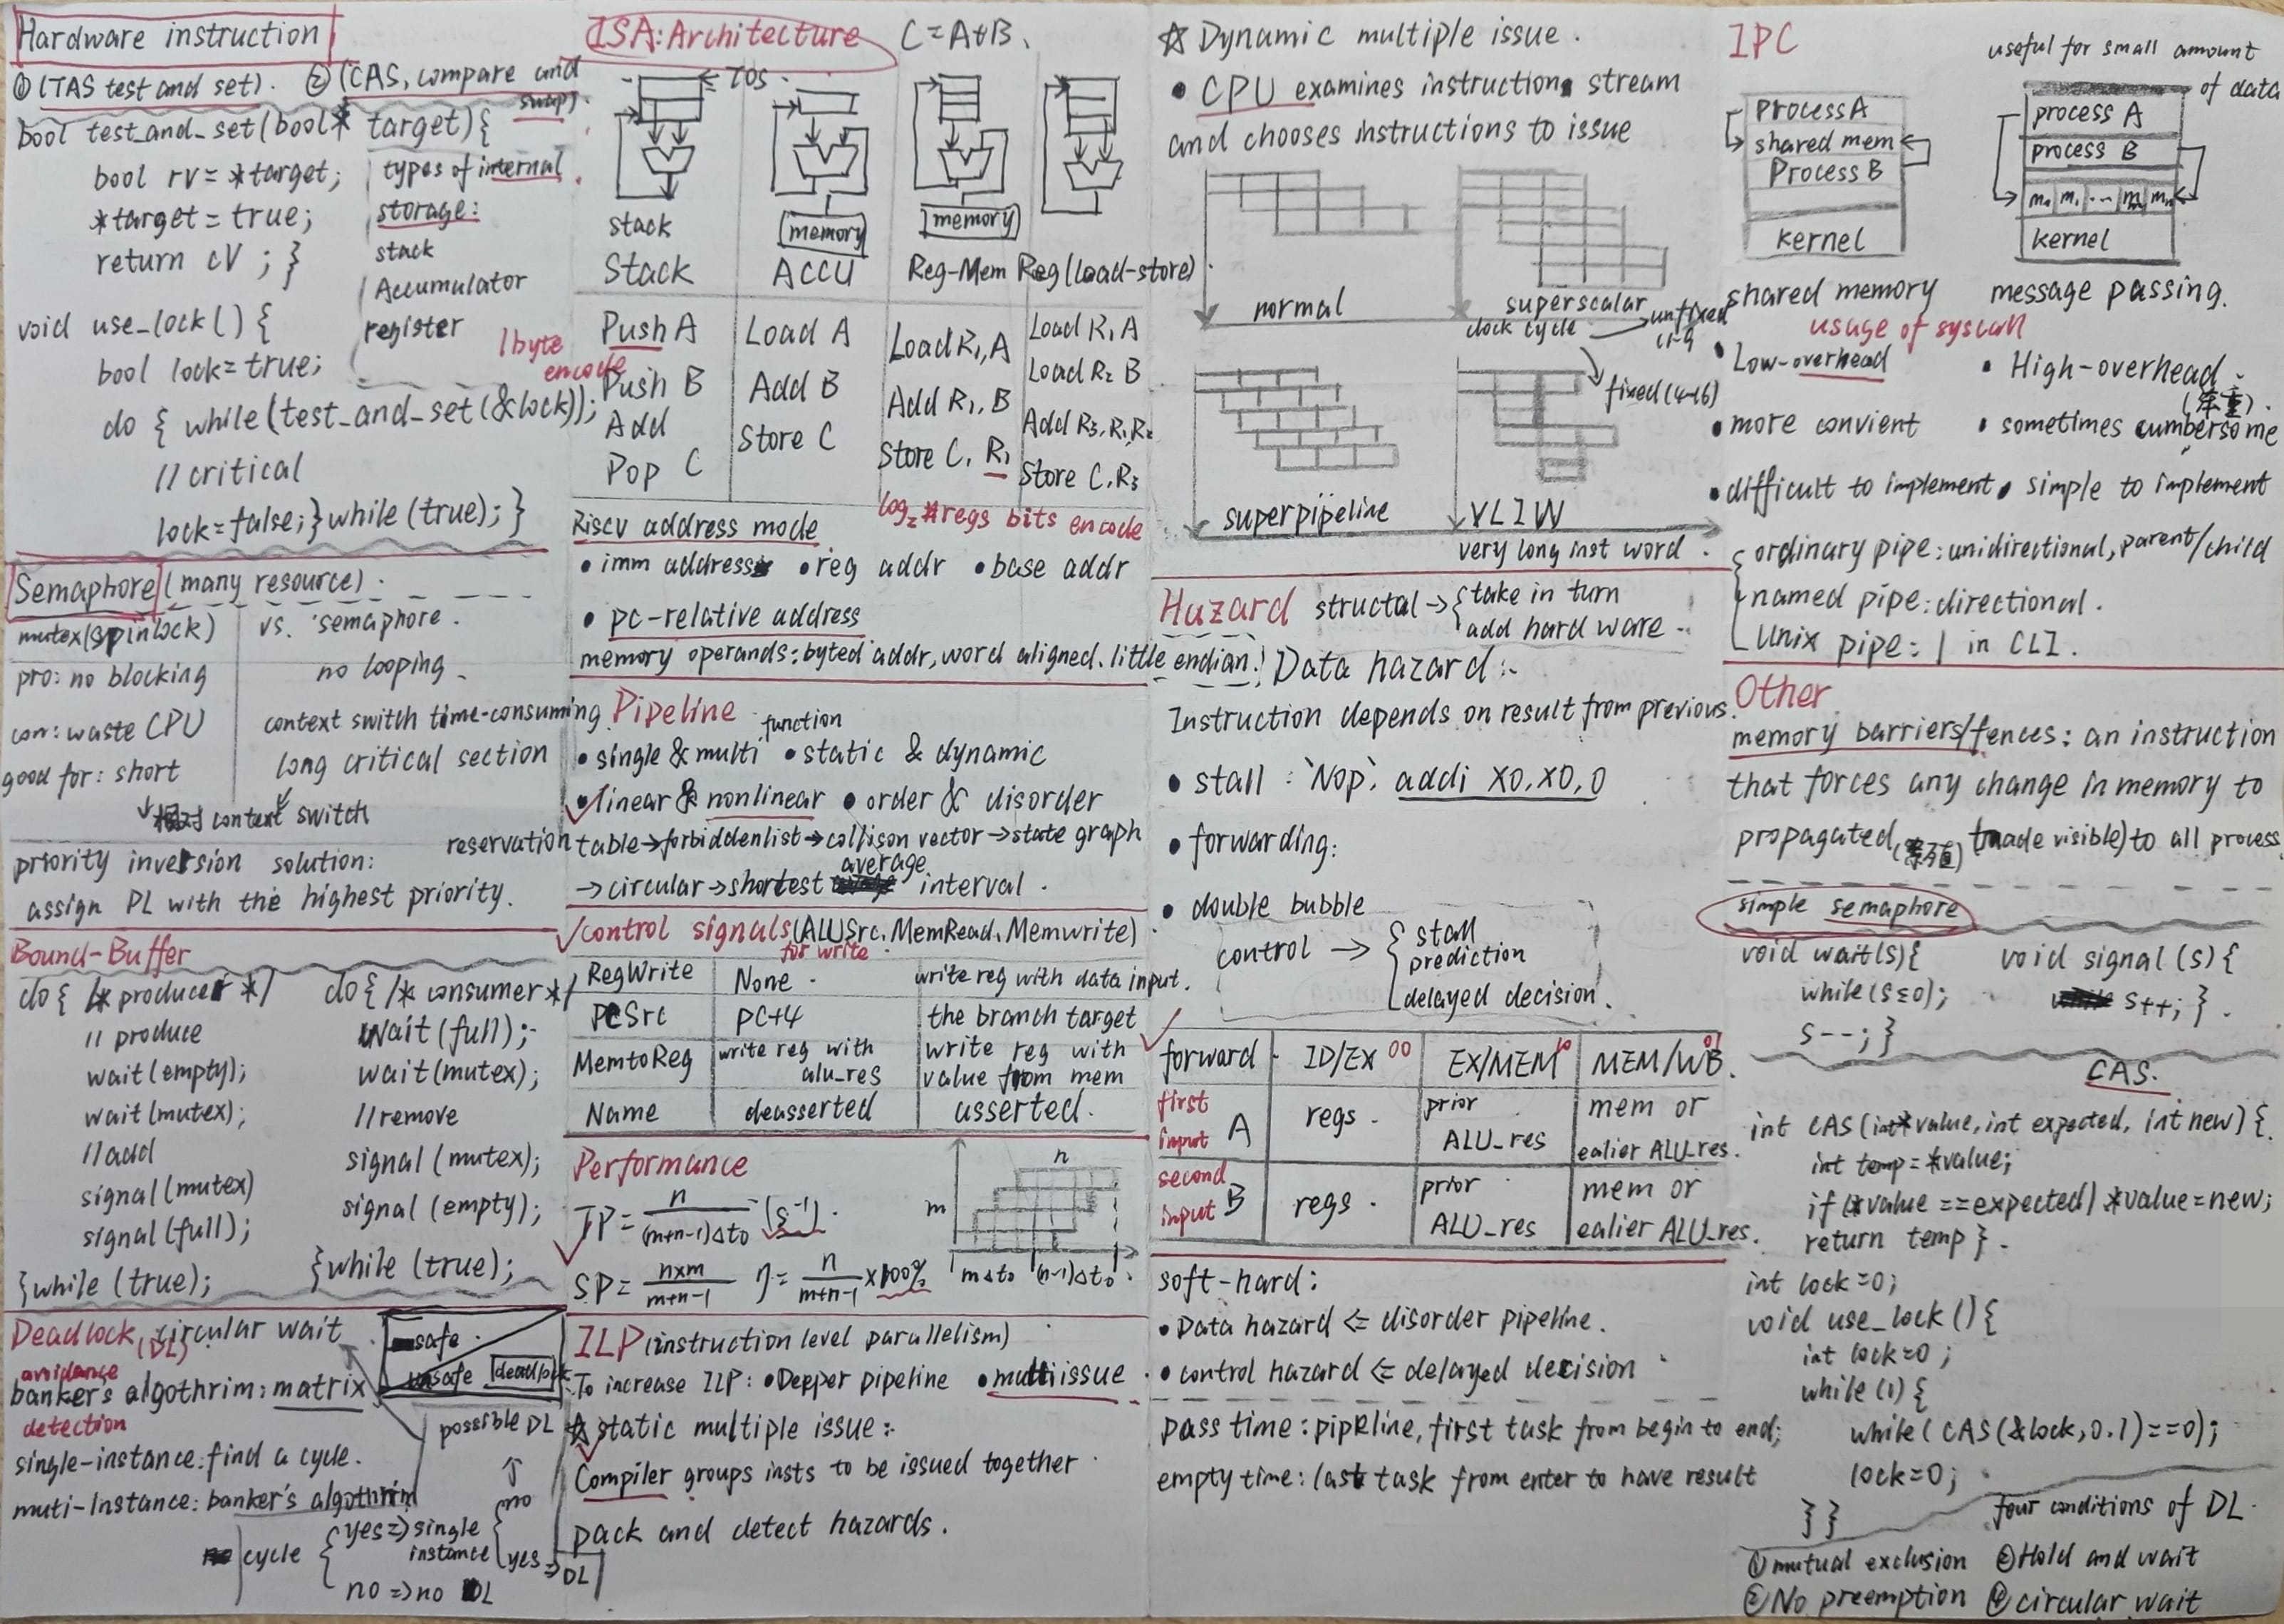 Hardware instruction
① (TAS test and set). ② (CAS, compare and swap).
bool test_and_set(bool* target){
bool rv = *target;
*target = true;
return rV ; }
types of internal
storage:
stack
Accumulator
register
void use_lock() {
bool lock = true;
do { while (test_and_set(&lock));
// critical
lock = false; } while (true); }
Semaphore (many resource).
mutex(spinlock) vs. semaphore.
pro: no blocking no looping
con: waste CPU context switch time-consuming
good for: short long critical section
context switch
priority inversion solution:
assign PL with the highest priority.
Bound-Buffer
do { /* producer */
// produce
wait (empty);
wait (mutex);
// add
signal (mutex)
signal (full);
} while (true);
do { /* consumer */
Wait (full);
wait (mutex);
// remove
signal (mutex);
signal (empty);
} while (true);
Deadlock (DL) circular wait
avoidance
banker's algothrim: matrix
detection
single-instance: find a cycle.
muti-Instance: banker's algothrim
safe
unsafe deadlock
possible DL
cycle { yes => single instance { no
yes => DL
no => no DL
ISA: Architecture C = A + B.
TOS
stack memory memory
Stack ACCU Reg-Mem Reg (Load-store)
1 byte
encode
Push A
Push B
Add
Pop C
Load A
Add B
Store C
Load R1, A
Add R1, B
Store C, R1
Load R1 A
Load R2 B
Add R3, R1, R2
Store C, R3
log2 #regs bits encode
Riscv address mode
• imm address • reg addr • base addr
• pc-relative address
memory operands: byted addr, word aligned, little endian.
Pipeline
function
• single & multi • static & dynamic
• linear & nonlinear • order & disorder
reservation table → forbidden list → collison vector → state graph
→ circular → shortest average interval.
control signals (ALUSrc, MemRead, Memwrite)
for write
RegWrite None write reg with data input.
PCSrc PC+4 the branch target
MemtoReg write reg with alu_res write reg with value from mem
Name deasserted asserted.
Performance
TP = n / (m+n-1)Δt0 (s⁻¹).
SP = n×m / m+n-1 η = n / m+n-1 ×100%
n
m
mΔt0 (n-1)Δt0
ILP (instruction level parallelism)
To increase ILP: • Depper pipeline • multi issue
☆ static multiple issue:
Compiler groups insts to be issued together
pack and detect hazards.
☆ Dynamic multiple issue.
• CPU examines instructions stream
and chooses instructions to issue
normal superscalar
clock cycle → unfixed
fixed (4-16)
superpipeline VLIW
very long inst word
Hazard structal → { take in turn
add hard ware
Data hazard:
Instruction depends on result from previous.
• stall : 'Nop', addi X0, X0, 0
• forwarding:
• double bubble
control → { stall
prediction
delayed decision.
forward ID/EX 00 EX/MEM 10 MEM/WB 01
first input A regs prior ALU_res mem or ealier ALU_res.
second input B regs prior ALU_res mem or ealier ALU_res.
soft-hard:
• Data hazard <= disorder pipeline.
• control hazard <= delayed decision
pass time: pipeline, first task from begin to end;
empty time: last task from enter to have result
IPC
useful for small amount
of data
Process A
shared mem
Process B
kernel
process A
process B
m0 m1 ... mn
kernel
shared memory message passing.
usage of syscall
• Low-overhead • High-overhead
• more convient • sometimes cumbersome
(笨重).
• difficult to implement • simple to implement
ordinary pipe: unidirectional, parent/child
named pipe: directional.
Unix pipe: | in CLI.
Other
memory barriers/fences: an instruction
that forces any change in memory to
propagated (made visible) to all process
simple semaphore
void wait(s){
while (s≤0);
s--; }
void signal (s) {
s++; }.
CAS.
int CAS (int* value, int expected, int new) {
int temp = *value;
if (*value == expected) *value = new;
return temp }.
int lock = 0;
void use_lock () {
int lock = 0 ;
while (1) {
while ( CAS (&lock, 0, 1) == 0);
lock = 0;
} }
four conditions of DL
① mutual exclusion ② Hold and wait
③ No preemption ④ circular wait